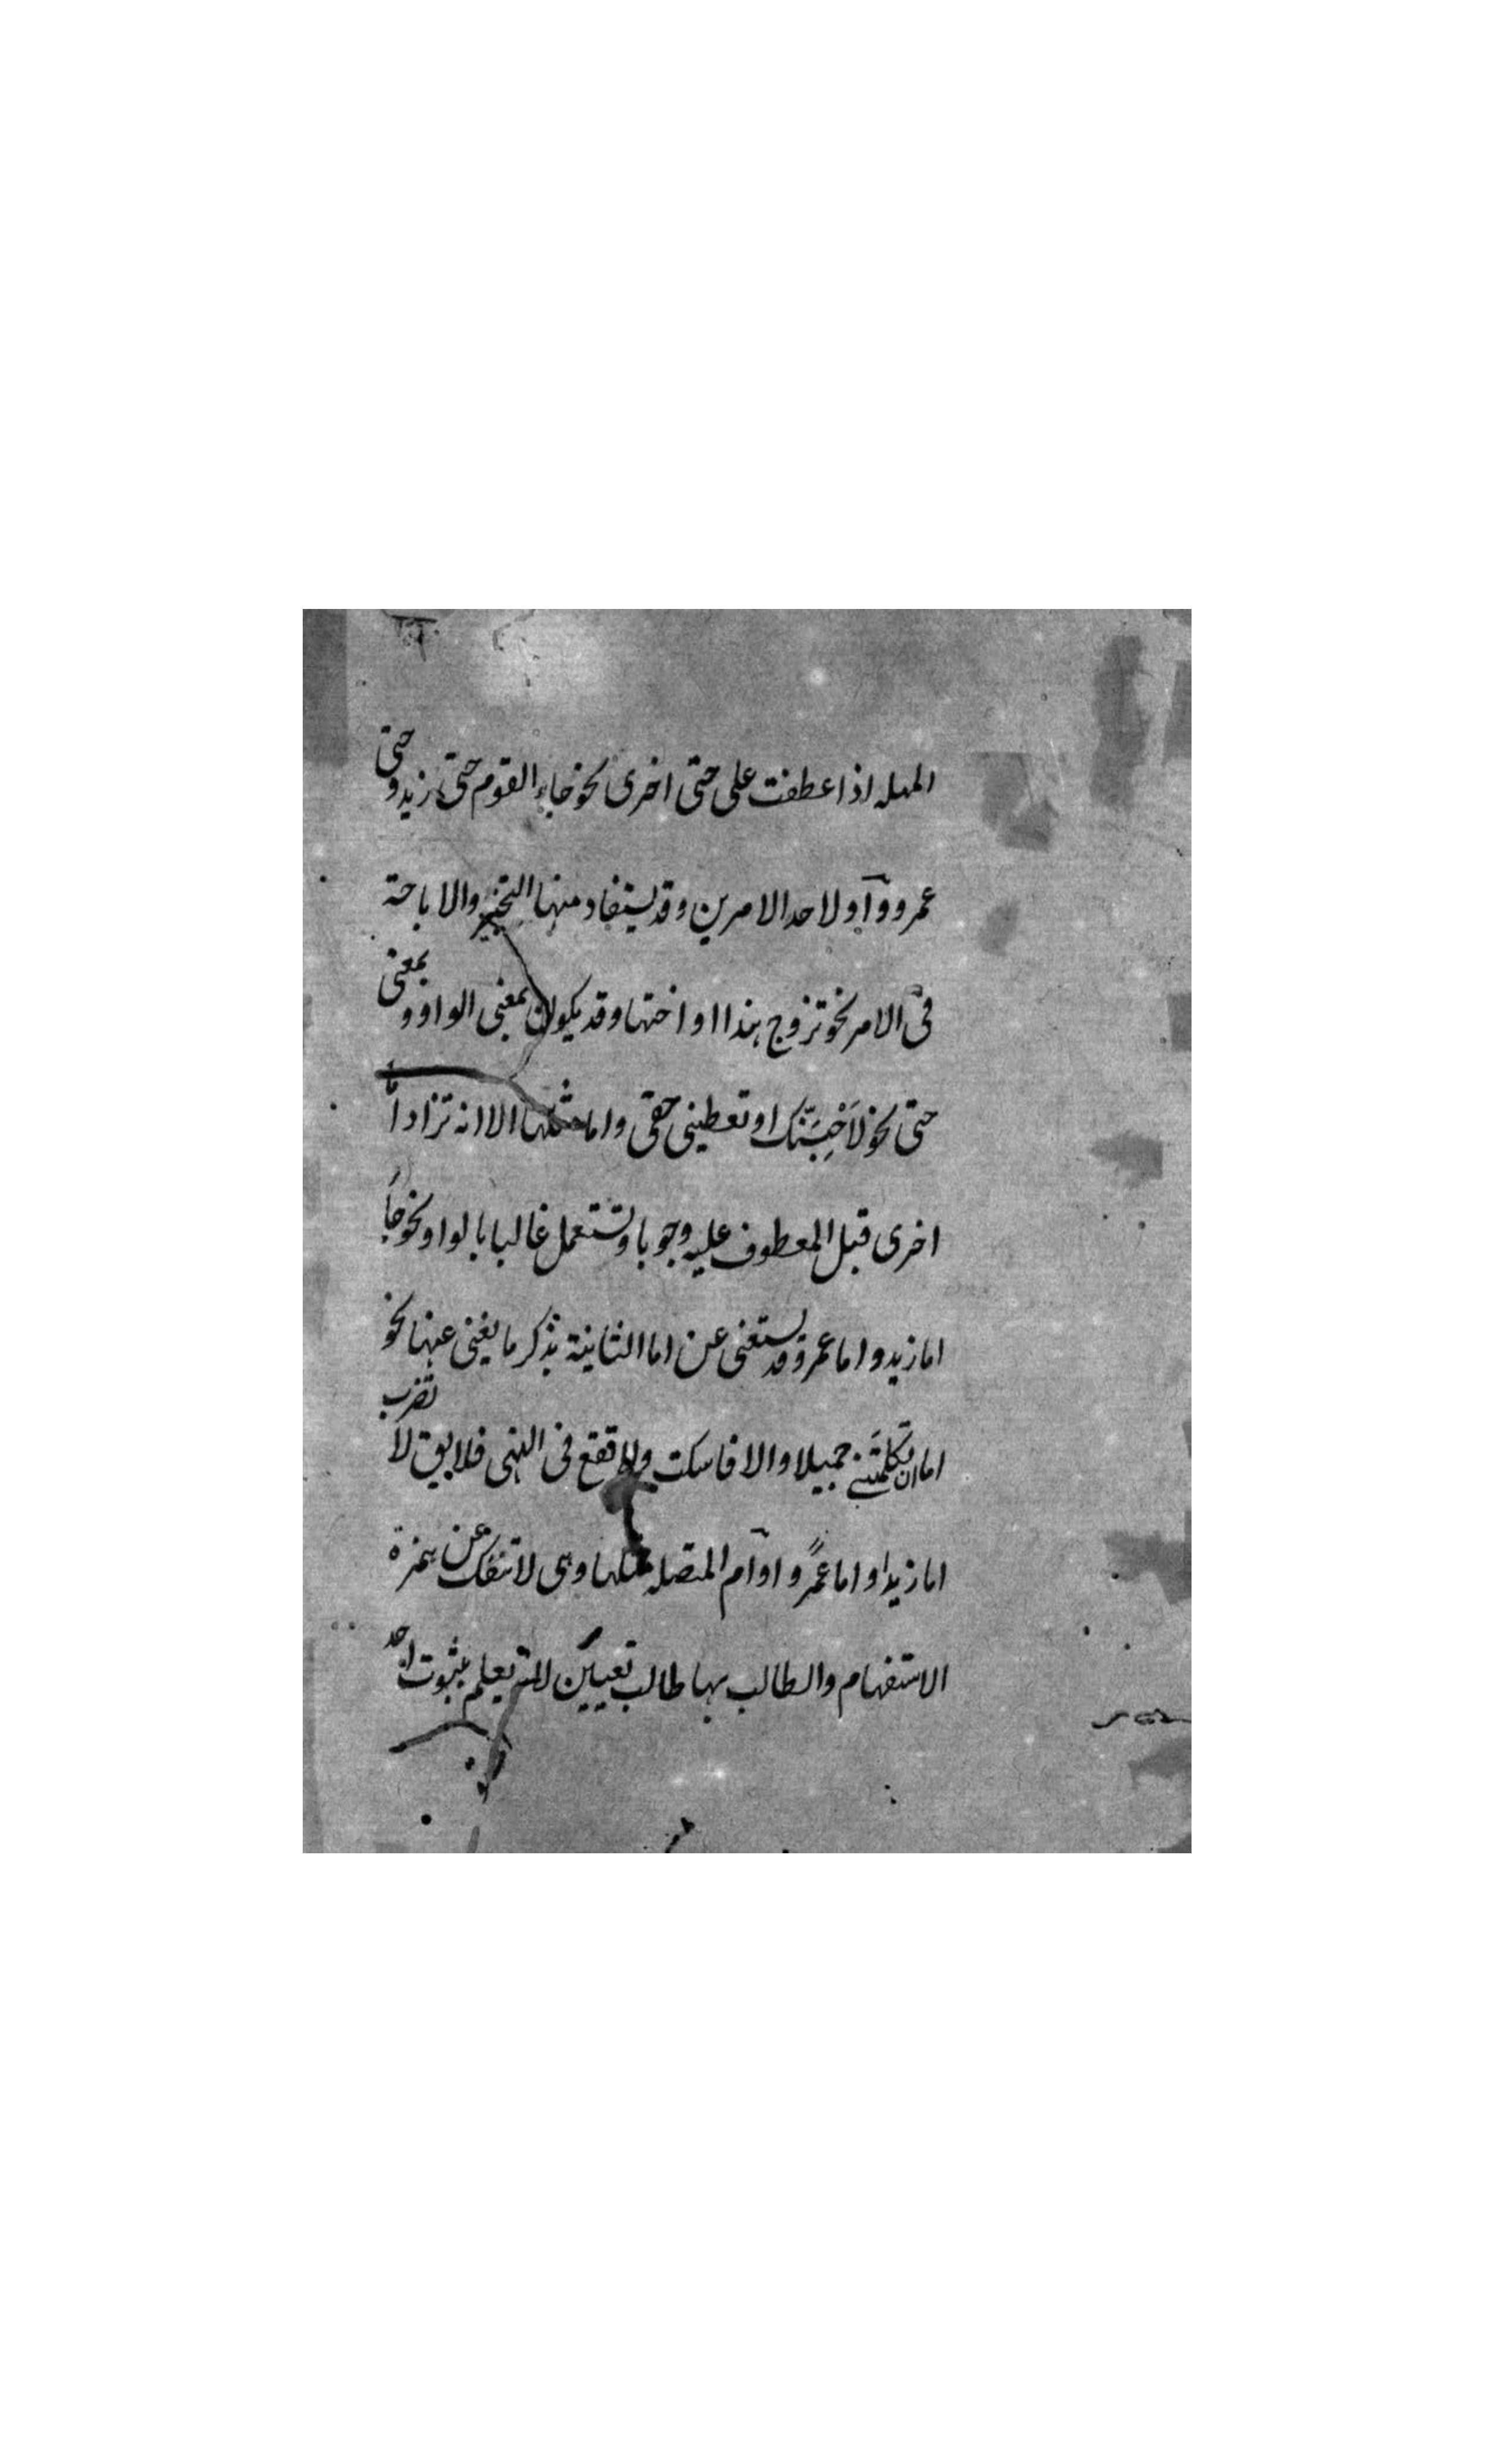 المهله اذا عطفت على حتى اخرى نحو جاء القوم حتى زيد وحتى
عمرو وآو لاحد الامرين وقد يستفاد منها التخيير والاباحة
فى الامر نحو تزوج هندا او اختها وقد يكون بمعنى الواو وبمعنى
حتى نحو لاحبسنك او تعطينى حقى واما مثلها الا انه تزاد اما
اخرى قبل المعطوف عليه وجوبا وتستعمل غالبا بالواو نحو جأ
اما زيد واما عمرو وقد يستغنى عن اما الثانية بذكر ما يغنى عنها نحو
اما ان تكلمنى جميلا والا فاسكت ولا تقع فى النهى فلا يق لا تضرب
اما زيدا واما عمرًوا وآم المتصله مثلها وهى لا تنفك عن همزة
الاستفهام والطالب بها طالب تعيين يعلم بثبوت احد